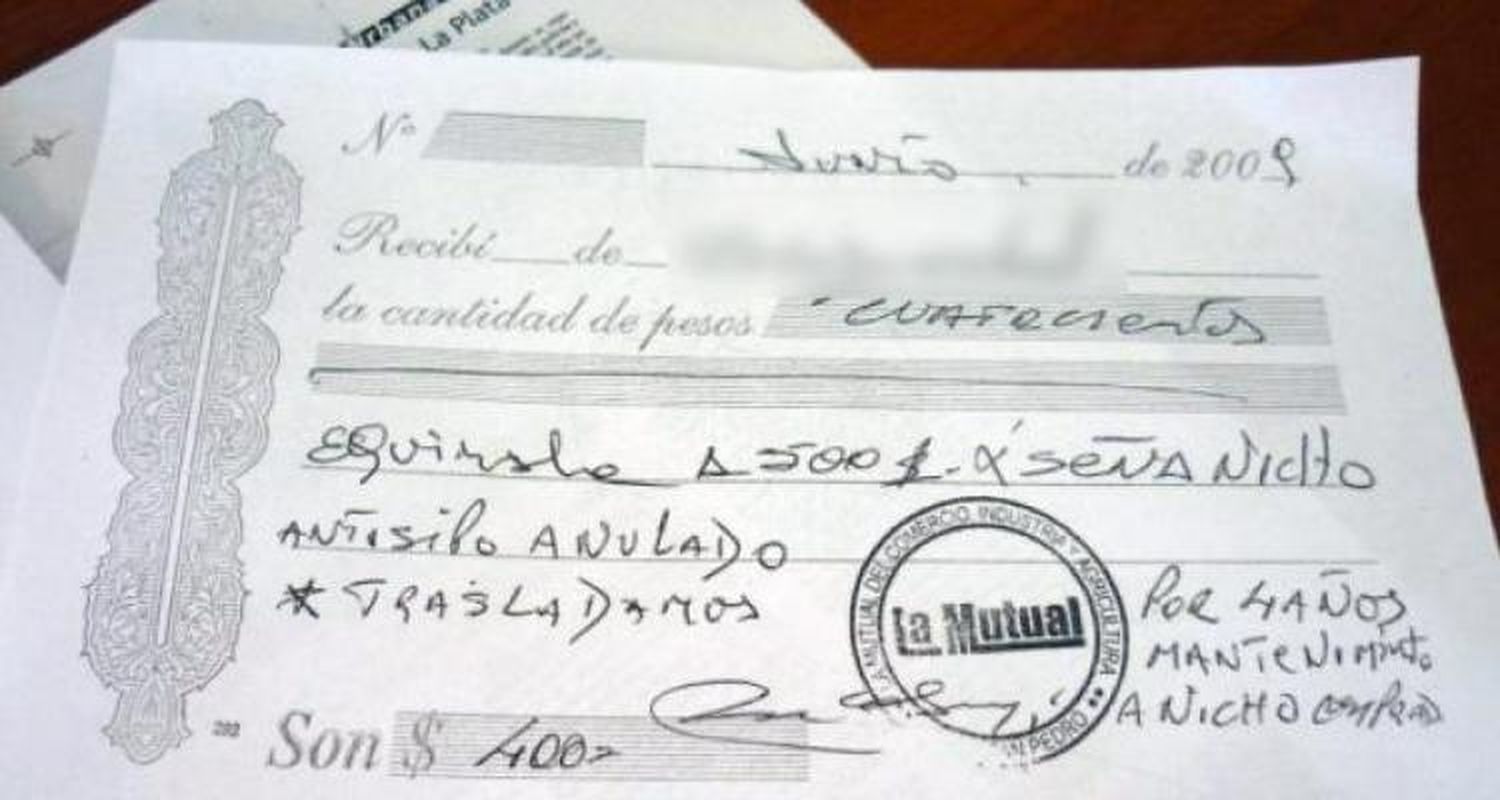 La Plata
Nº Junio de 2009
Recibí de
la cantidad de pesos CUATROCIENTOS
EQUIVALE A 500 $. X SEÑA NICHO
ANTISIPO ANULADO
* TRASLADAMOS
LA MUTUAL DE COMERCIO INDUSTRIA Y AGRICULTURA
La Mutual
SAN PEDRO
POR 4 AÑOS
MANTENIMINTO
A NICHO COMPRAD
Son $ 400=